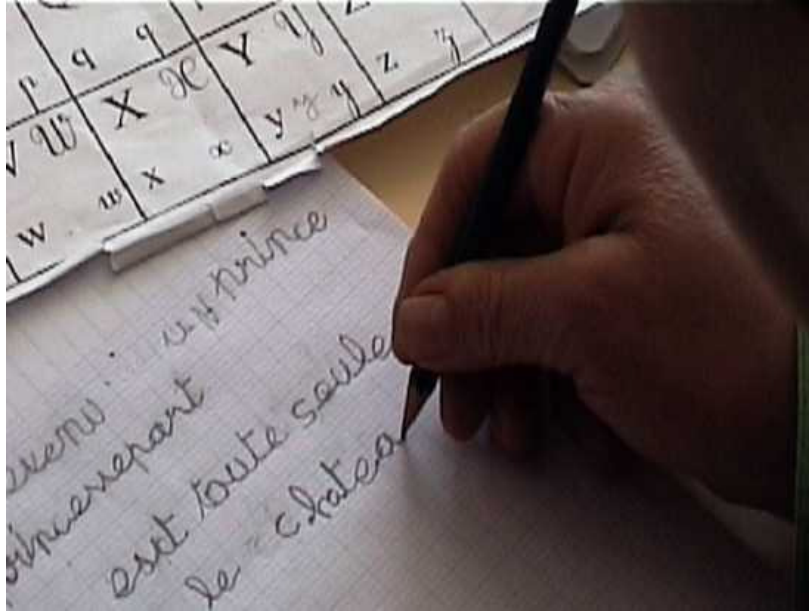 q q
p
X X Y Y Z
W x x y y y z z
w w
un prince
princerepart
est toute seule
le chatea